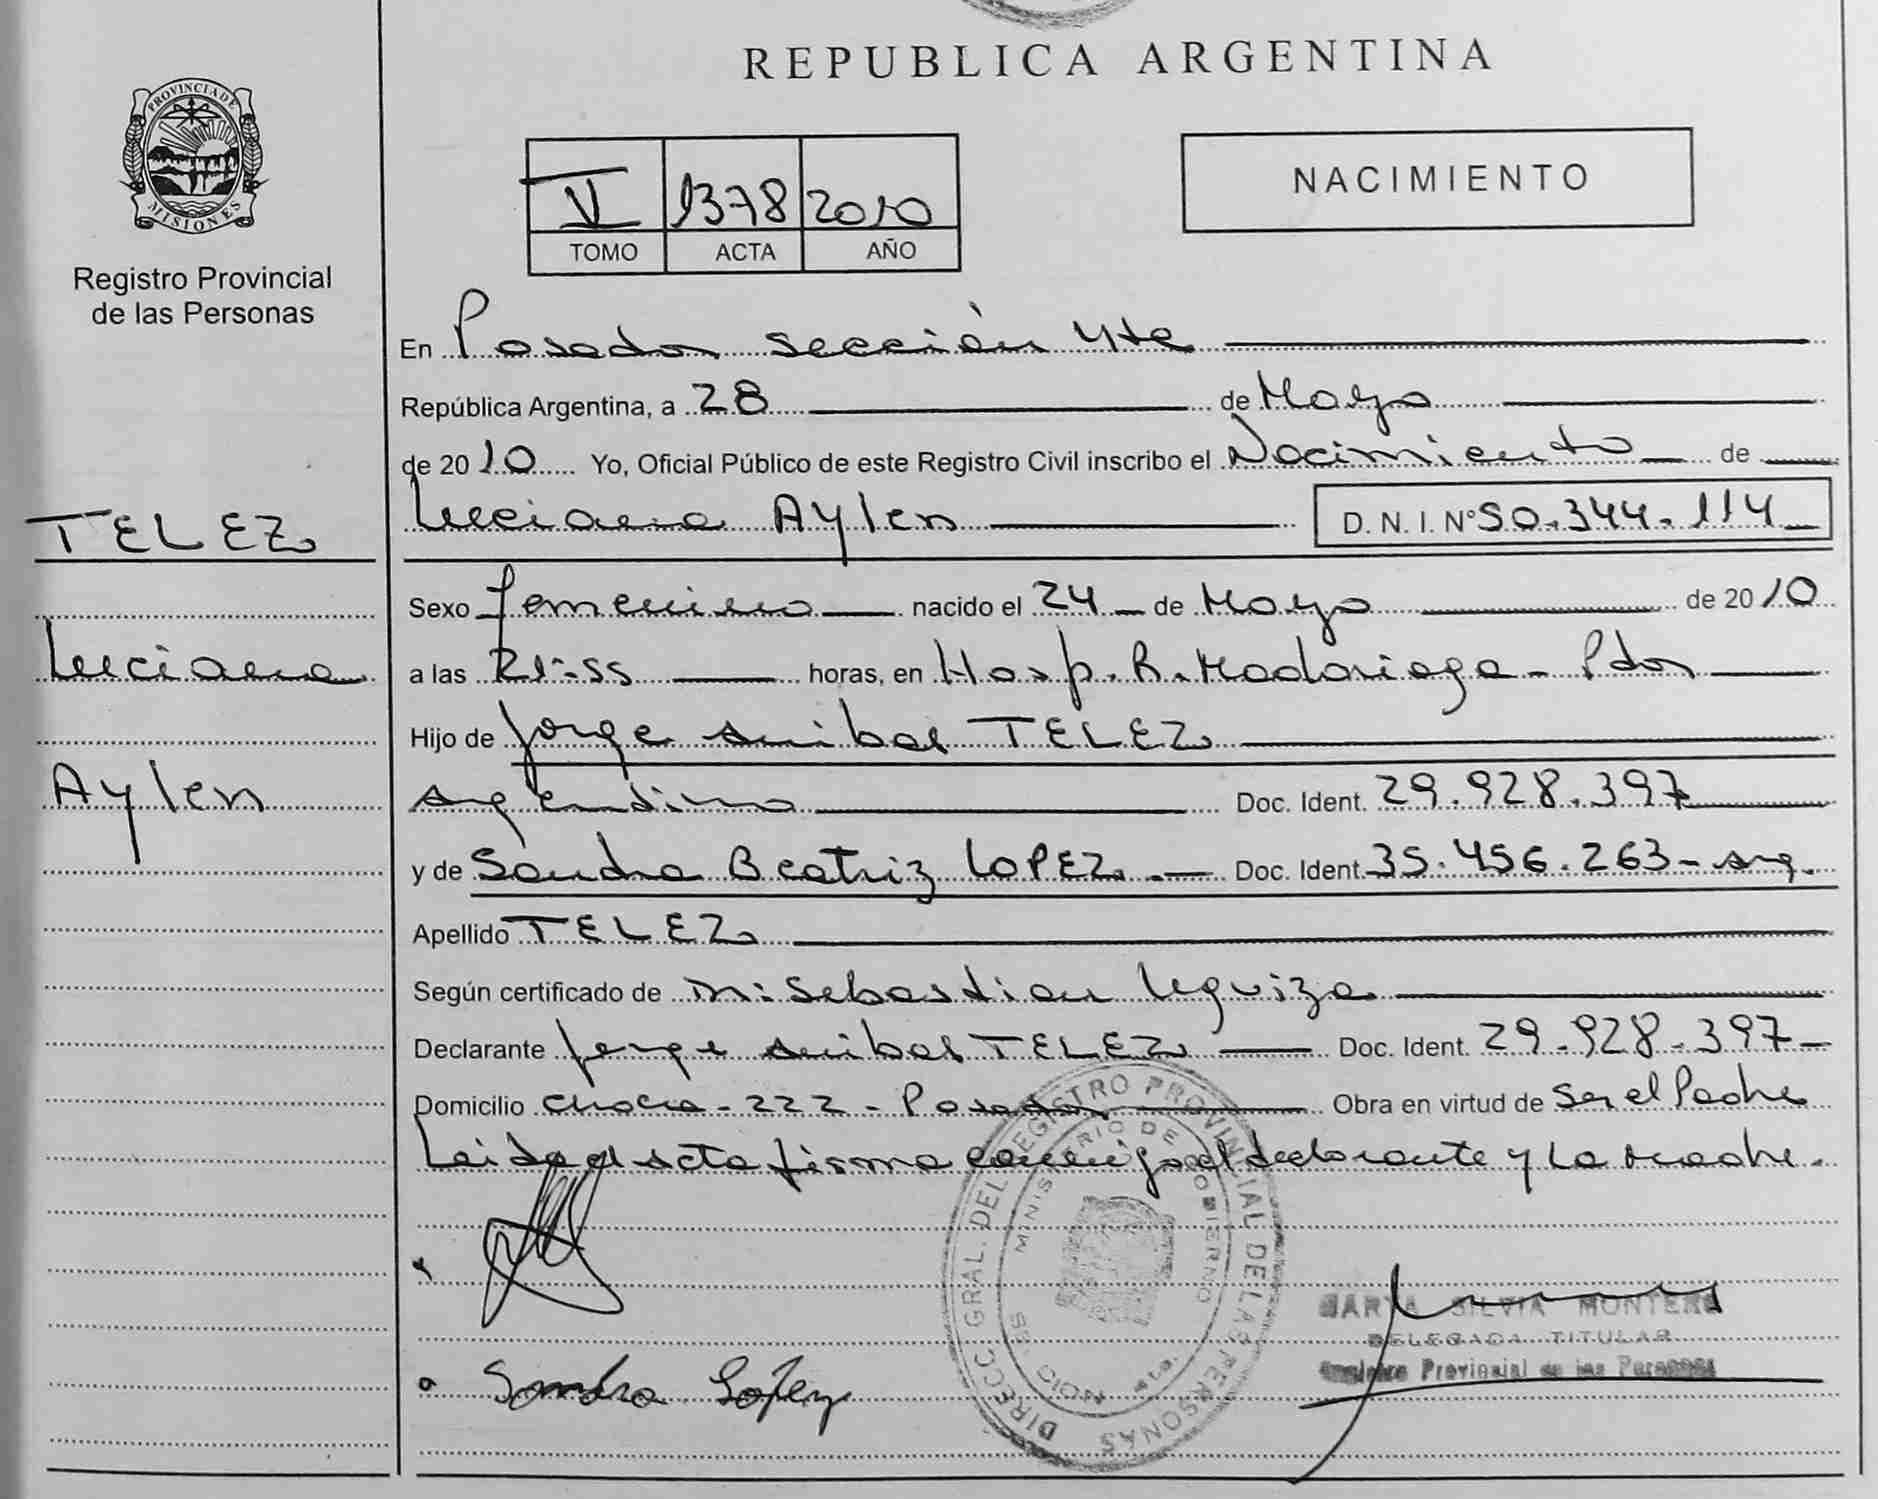 REPUBLICA ARGENTINA
PROVINCIA DE MISIONES
Registro Provincial
de las Personas
V 1378 2010
TOMO ACTA AÑO
NACIMIENTO
En Posadas sección 4ta
República Argentina, a 28 de Mayo
de 2010 Yo, Oficial Público de este Registro Civil inscribo el Nacimiento de
Luciana Aylen D. N. I. N° 50.344.114
TELEZ
Luciana
Aylen
Sexo femenino nacido el 24 de Mayo de 2010
a las 21:55 horas, en Hosp. R. Madariaga - Pdas
Hijo de Jorge Anibal TELEZ
argentino Doc. Ident. 29.928.397
y de Sandra Beatriz LOPEZ.- Doc. Ident. 35.456.263- arg.
Apellido TELEZ
Según certificado de M: Sebastian
Declarante Jorge Anibal TELEZ Doc. Ident. 29.928.397-
Domicilio - 222 - Posadas Obra en virtud de Ser el Padre
Leida el acta firma conmigo el declarante y La Madre.
DIRECC. GRAL. DEL REGISTRO PROVINCIAL DE LAS PERSONAS
MINISTERIO DE GOBIERNO
Sandra Lopez
MARTA SILVIA MONTERO
DELEGADA TITULAR
Registro Provincial de las Personas